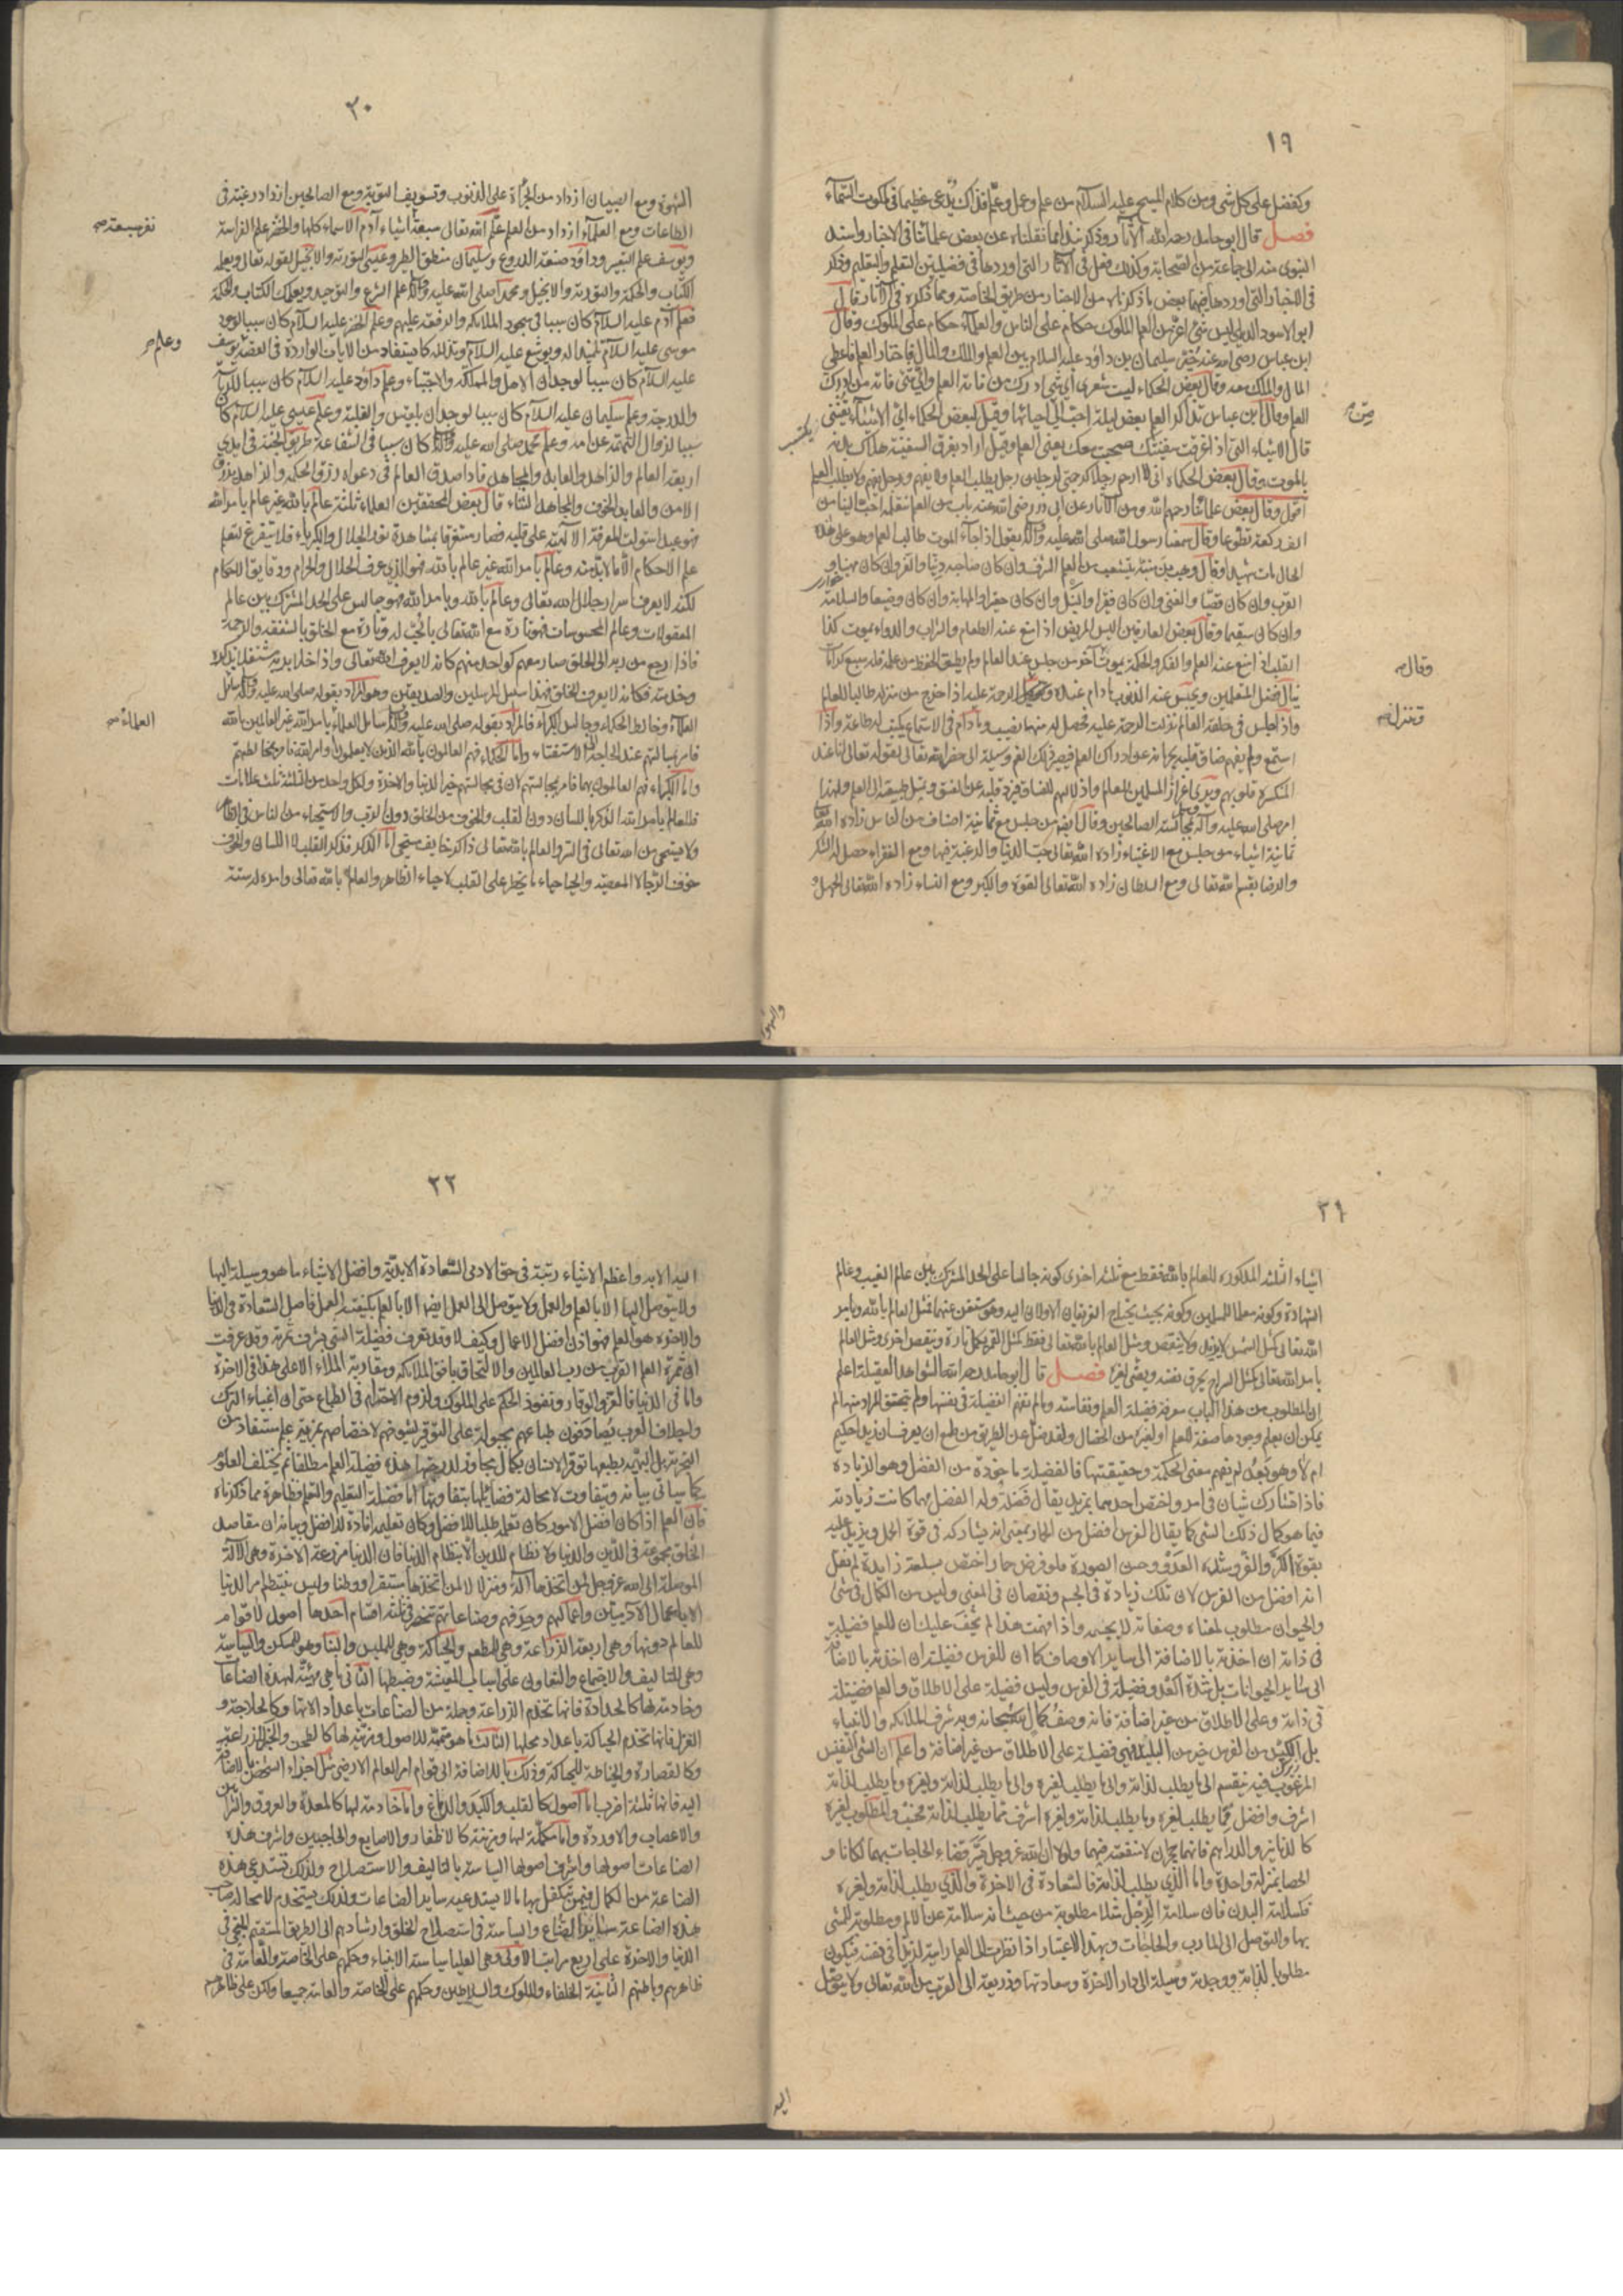 ١٩
وكفضلى على كل شئ ومن كلام المسيح عليه السلام من علم وعمل وعلّم فذلك يدعى عظيما فى ملكوت السماء
فصل قال ابوحامد رحمه الله الآثار وذكر نبذا مما نقلناه عن بعض علمائنا فى الاخبار واسند
النبوى منه الى جماعة من الصحابة وكذلك فعل فى الآثار التى اوردها فى فضيلتى التعلم والتعليم وذكر
فى الاخبار التى اوردها فيهما بعض ما ذكرناه من الاخبار من طريق الخاصة ومما ذكره فى الآثار قال
ابو الاسود الدئلى ليس شئ اعز من العلم الملوك حكام على الناس والعلماء حكام على الملوك وقال
ابن عباس رضى الله عنه خيّر سليمان بن داود عليه السلام بين العلم والملك والمال فاختار العلم فاعطى
المال والملك معه وقال بعض الحكماء ليت شعرى اى شئ ادرك من فاته العلم واى شئ فاته من ادرك
العلم وقال ابن عباس تذاكر العلم بعض ليلة احبّ الىّ من احيائها وقيل لبعض الحكماء اىّ الاشياء تقتنى
قال الاشياء التى اذا غرقت سفينتك سبحت معك يعنى العلم وقيل اراد بغرق السفينة هلاك بدنه
بالموت وقال بعض الحكماء انى لا ارحم رجلا كرحمتى لرجلين رجل يطلب العلم ولا يفهم ورجل يفهم ولا يطلب العلم
اقول وقال بعض علمائنا رحمهم الله ومن الآثار عن ابى ذر رضى الله عنه باب من العلم نتعلمه احبّ الينا من
الف ركعة تطوعا وقال سمعنا رسول الله صلى الله عليه وآله يقول اذا جاء الموت طالب العلم وهو على هذه
الحال مات شهيدا وقال وهب بن منبه يتشعب من العلم الشرف وان كان صاحبه دنيّا والعز وان كان مهينا و
القرب وان كان قصيّا والغنى وان كان فقيرا والنبل وان كان حقيرا والمهابة وان كان وضيعا والسلامة
وان كان سقيما وقال بعض العارفين اليس المريض اذا منع عنه الطعام والشراب والدواء يموت كذا
القلب اذا منع عنه العلم والفكر والحكمة يموت آخر من جلس عند العالم ولم يطق الحفظ من علمه فله سبع كرامات
ينال فضل المتعلمين ويحبس عنه الذنوب ما دام عنده الرحمة عليه اذا خرج من منزله طالبا للعلم
واذا جلس فى حلقة العالم نزلت الرحمة عليه فحصل له منها نصيب وما دام فى الاستماع يكتب له طاعة واذا
استمع ولم يفهم ضاق قلبه بحرمانه عن ادراك العلم فيصير ذلك الغم وسيلة الى حضرة الله تعالى لقوله تعالى انا عند
المنكسرة قلوبهم ويرى اعزاز المسلمين للعالم واذلالهم للفساق فيردّ قلبه عن الفسق وتميل طبيعته الى العلم ولهذا
امر صلى الله عليه وآله بمجالسة الصالحين وقال ايضا من جلس مع ثمانية اصناف من الناس زاده الله
ثمانية اشياء من جلس مع الاغنياء زاده الله تعالى حبّ الدنيا والرغبة فيها ومع الفقراء حصل له الشكر
والرضا بقسم الله تعالى ومع السلطان زاده الله تعالى القسوة والكبر ومع النساء زاده الله تعالى الجهل و
يكتسب
وقال
وتنزل
والشهوة
٢٠
الشهوة ومع الصبيان ازداد من الجرأة على الذنوب وتسويف التوبة ومع الصالحين ازداد رغبة فى
الطاعات ومع العلماء ازداد من العلم علّم الله تعالى سبعة اشياء آدم الاسماء كلها والخضر علم الفراسة
ويوسف علم التعبير وداود صنعة الدروع وسليمان منطق الطير وعيسى التورية والانجيل لقوله تعالى ويعلمه
الكتاب والحكمة والتورية والانجيل ومحمدا صلى الله عليه وآله علم الشرع والتوحيد ويعلمك الكتاب والحكمة
فعلم آدم عليه السلام كان سببا فى سجود الملائكة والرفعة عليهم وعلم الخضر عليه السلام كان سببا لوجود
موسى عليه السلام تلميذا له ويوشع عليه السلام وتذلله كما يستفاد من الآيات الواردة فى القصة يوسف
عليه السلام كان سببا لوجدان الاهل والمملكة والاجتباء وعلم داود عليه السلام كان سببا للرياسة
والدرجة وعلم سليمان عليه السلام كان سببا لوجدان بلقيس والغلبة وعلم عيسى عليه السلام كان
سببا لزوال التهمة عن امه وعلم محمد صلى الله عليه وآله كان سببا فى الشفاعة طريق الجنة فى ايدى
اربعة العالم والزاهد والعابد والمجاهد فاذا صدق العالم فى دعواه رزق الحكمة والزاهد يرزق
الامن والعابد الخوف والمجاهد الثناء قال بعض المحققين العلماء ثلثة عالم بالله غير عالم بامر الله
فهو عبد استولت المعرفة الالهية على قلبه فصار مستغرقا بمشاهدة نور الجلال والكبرياء فلا يتفرغ لتعلم
علم الاحكام الا ما لابد منه وعالم بامر الله غير عالم بالله فهو الذى عرف الحلال والحرام ودقايق الاحكام
لكنه لا يعرف اسرار جلال الله تعالى وعالم بالله وبامر الله فهو جالس على الحد المشترك بين عالم
المعقولات وعالم المحسوسات فهو تارة مع الله تعالى بالحبّ له وتارة مع الخلق بالشفقة والرحمة
فاذا رجع من ربه الى الخلق صار معهم كواحد منهم كانه لا يعرف الله تعالى واذا خلا بربه مشتغلا بذكره
وخدمته فكانه لا يعرف الخلق فهذا سبيل المرسلين والصديقين وهو المراد بقوله صلى الله عليه وآله سائل
العلماء وخالط الحكماء وجالس الكبراء فالمراد بقوله صلى الله عليه وآله سائل العلماء بامر الله غير العالمين بالله
فامر بمسائلتهم عند الحاجة الى الاستفتاء واما الحكماء فهم العالمون بالله الذين لا يعلمون اوامر الله فامر بمخالطتهم
واما الكبراء فهم العالمون بهما فامر بمجالستهم لان فى مجالستهم خير الدنيا والاخرة ولكل واحد من الثلثة ثلث علامات
فللعالم بامر الله الذكر باللسان دون القلب والخوف من الخلق دون الرب والاستحياء من الناس فى الظاهر
ولا يستحيى من الله تعالى فى السر والعالم بالله تعالى ذاكر خايف مستحى اما الذكر فذكر القلب لا اللسان والخوف
خوف الرجاء لا المعصية والحياء حياء ما يخطر على القلب لا حياء الظاهر والعالم بالله تعالى وامره له ستة
وعلم
العلماء
٢١
اشياء الثلثة المذكورة للعالم بالله فقط مع ثلثة اخرى كونه جالسا على الحد المشترك بين عالم الغيب وعالم
الشهادة وكونه معلما للمسلمين وكونه بحيث يحتاج الفريقان الاولان اليه وهو مستغن عنهما فمثل العالم بالله وبامر
الله تعالى كمثل الشمس لا يزيد ولا ينقص ومثل العالم بالله تعالى فقط كمثل القمر يكمل تارة وينقص اخرى ومثل العالم
بامر الله تعالى كمثل السراج يحرق نفسه ويضئ لغيره فصل قال ابوحامد رحمه الله الشواهد العقلية اعلم
ان المطلوب من هذا الباب معرفة فضيلة العلم ونفاسته وما لم تفهم الفضيلة فى نفسها ولم يتحقق المراد منها لم
يمكن ان يعلم وجودها صفة للعلم او لغيره من الخصال ولقد ضلّ عن الطريق من طمع ان يعرف ان زيدا حكيم
ام لا وهو بعد لم يفهم معنى الحكمة وحقيقتها فالفضيلة ماخوذة من الفضل وهو الزيادة
فاذا تشارك شيئان فى امر واختص احدهما بمزيد يقال فضله وله الفضل مهما كانت زيادته
فيما هو كمال ذلك الشئ كما يقال الفرس افضل من الحمار بمعنى انه يشاركه فى قوة الحمل ويزيد عليه
بقوة الكرّ والفرّ وشدة العدو وحسن الصورة فلو فرض حمار اختص بسلعة زايدة لم نقل
انه افضل من الفرس لان تلك زيادة فى الجسم ونقصان فى المعنى وليس من الكمال فى شئ
والحيوان مطلوب لمعناه وصفاته لا لجسمه واذا فهمت هذا لم يخف عليك ان للعلم فضيلة
فى ذاته ان اخذته بالاضافة الى سائر الاوصاف كما ان للفرس فضيلة ان اخذته بالاضافة
الى سائر الحيوانات بل شدة العدو فضيلة فى الفرس وليس فضيلة على الاطلاق والعلم فضيلة
فى ذاته وعلى الاطلاق من غير اضافة فانه وصف كمال الله سبحانه وبه شرف الملائكة والانبياء
بل الكيّس من الفرس خير من البليد فهى فضيلة على الاطلاق من غير اضافة واعلم ان الشئ النفيس
المرغوب فيه ينقسم الى ما يطلب لذاته والى ما يطلب لغيره والى ما يطلب لذاته ولغيره وما يطلب لذاته
اشرف وافضل مما يطلب لغيره وما يطلب لذاته ولغيره اشرف مما يطلب لذاته فحسب والمطلوب لغيره
كالدنانير والدراهم فانهما حجران لا منفعة فيهما ولولا ان الله عز وجل يسّر قضاء الحاجات بهما لكانا و
الحصا بمنزلة واحدة واما الذى يطلب لذاته فالسعادة فى الاخرة والذى يطلب لذاته ولغيره
فكسلامة البدن فان سلامة الرجل مثلا مطلوبة من حيث انه سلامة عن الالم ومطلوبة للمشى
بها والتوصل الى المآرب والحاجات وبهذا الاعتبار اذا نظرت الى العلم رايته لذيذا فى نفسه فيكون
مطلوبا لذاته ووجدته وسيلة الى دار الاخرة وسعادتها وذريعة الى القرب من الله تعالى ولا يتوصل
اليه
٢٢
اليه الا به واعظم الاشياء رتبة فى حق الآدمى السعادة الابدية وافضل الاشياء ما هو وسيلة اليها
ولا يتوصل اليها الا بالعلم والعمل ولا يتوصل الى العمل ايضا الا بالعلم بكيفية العمل فاصل السعادة فى الدنيا
والاخرة هو العلم فهو اذن افضل الاعمال وكيف لا وقد تعرف فضيلة الشئ بشرف ثمرته وقد عرفت
ان ثمرة العلم القرب من رب العالمين والالتحاق بافق الملائكة ومقارنة الملاء الاعلى هذا فى الاخرة
واما فى الدنيا فالعز والوقار ونفوذ الحكم على الملوك ولزوم الاحترام فى الطباع حتى ان اغبياء الترك
واجلاف العرب يصادفون طباعهم مجبولة على التوقير لشيوخهم لاختصاصهم بمزيد علم مستفاد من
التجربة بل البهيمة بطبعها توقر الانسان بكمال مجاوز لدرجتها هذه فضيلة العلم مطلقا ثم يختلف العلوم
كما سياتى بيانه ويتفاوت لا محالة فضائلها بتفاوتها اما فضيلة التعليم والتعلم فظاهرة مما ذكرناه
فان العلم اذا كان افضل الامور كان تعلمه طلبا للافضل وكان تعليمه افادة للافضل وبيانه ان مقاصد
الخلق مجموعة فى الدين والدنيا ولا نظام للدين الا بنظام الدنيا فان الدنيا مزرعة الاخرة وهى الآلة
الموصلة الى الله عز وجل لمن اتخذها آلة ومنزلا لا لمن اتخذها مستقرا ووطنا وليس ينتظم امر الدنيا
الا باعمال الآدميين واعمالهم وحرفهم وصناعاتهم تنحصر فى ثلثة اقسام احدها اصول لا قوام
للعالم دونها وهى اربعة الزراعة وهى للمطعم والحياكة وهى للملبس والبناء وهو للمسكن والسياسة
وهى للتاليف والاجتماع والتعاون على اسباب المعيشة وضبطها الثانى ما هى مهيئة لهذه الصناعات
وخادمة لها كالحدادة فانها تخدم الزراعة وجملة من الصناعات باعداد آلاتها وكالحلاجة و
الغزل فانها تخدم الحياكة باعداد محلها الثالث ما هو متممة للاصول ومزينة لها كالطحن والخبز للزراعة
وكالقصارة والخياطة للحياكة وذلك بالاضافة الى قوام امر العالم الارضى مثل اجزاء الشخص بالاضافة
اليه فانها ثلثة اضرب اما اصول كالقلب والكبد والدماغ واما خادمة لها كالمعدة والعروق والشرايين
والاعصاب والاوردة واما مكملة لها ومزينة كالاظفار والاصابع والحاجبين واشرف هذه
الصناعات اصولها واشرف اصولها السياسة بالتاليف والاستصلاح ولذلك تستدعى هذه
الصناعة من الكمال فيمن تكفل بها ما لا يستدعيه سائر الصناعات ولذلك يستخدم لا محالة صاحب
هذه الصناعة سائر الصناع والسياسة فى استصلاح الخلق وارشادهم الى الطريق المستقيم المنجى فى
الدنيا والاخرة على اربع مراتب الاولى وهى العليا سياسة الانبياء وحكمهم على الخاصة والعامة فى
ظاهرهم وباطنهم الثانية الخلفاء والملوك والسلاطين وحكمهم على الخاصة والعامة جميعا ولكن على ظاهرهم